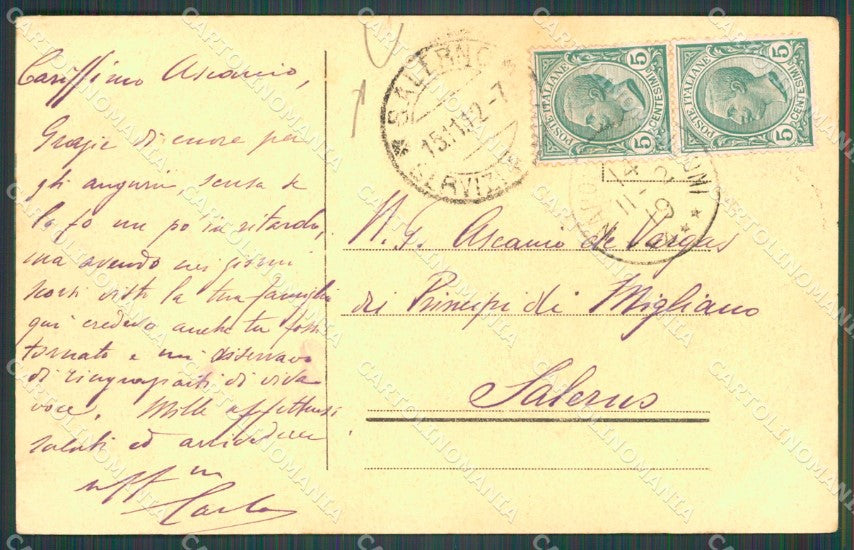 Carissimo Ascanio,
Grazie di cuore per
gli auguri, scusa se
lo fo un po' in ritardo,
ma avendo nei giorni
visti la tua famiglia
qui credevo anche tu fossi
tornato e mi riservavo
di ringraziarti di viva
voce. Mille affettuosi
saluti ed arrivederci
aff
Carlo
SALERNO
15.11.12-7
SERVIZI
POSTE ITALIANE
5
CENTESIMI
5
POSTE ITALIANE
5
CENTESIMI
5
14
11
N. H. Ascanio de Vargas
dei Principi di Migliano
Salerno
CARTOLINOMANIA